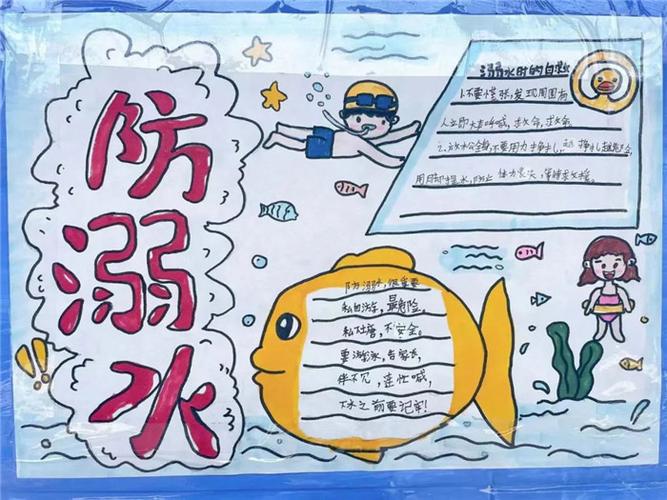 防溺水
溺水时的自救
1.不要慌张,发现周围有
人立即大声呼喊,救命,救命。
2、放松全身,不要用力挣扎,
用脚踢水,防止体力丧失,等待救援。
防溺水,很重要
私自游,最危险。
私 塘,不安全。
要游泳,告家长,
伴不见,连忙喊,
下水之前要记牢!